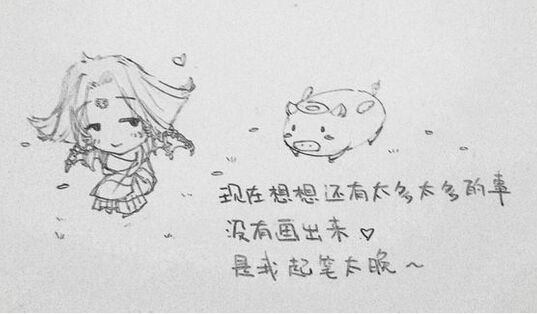 现在想想还有太多太多的事
没有画出来♥
是我起笔太晚～